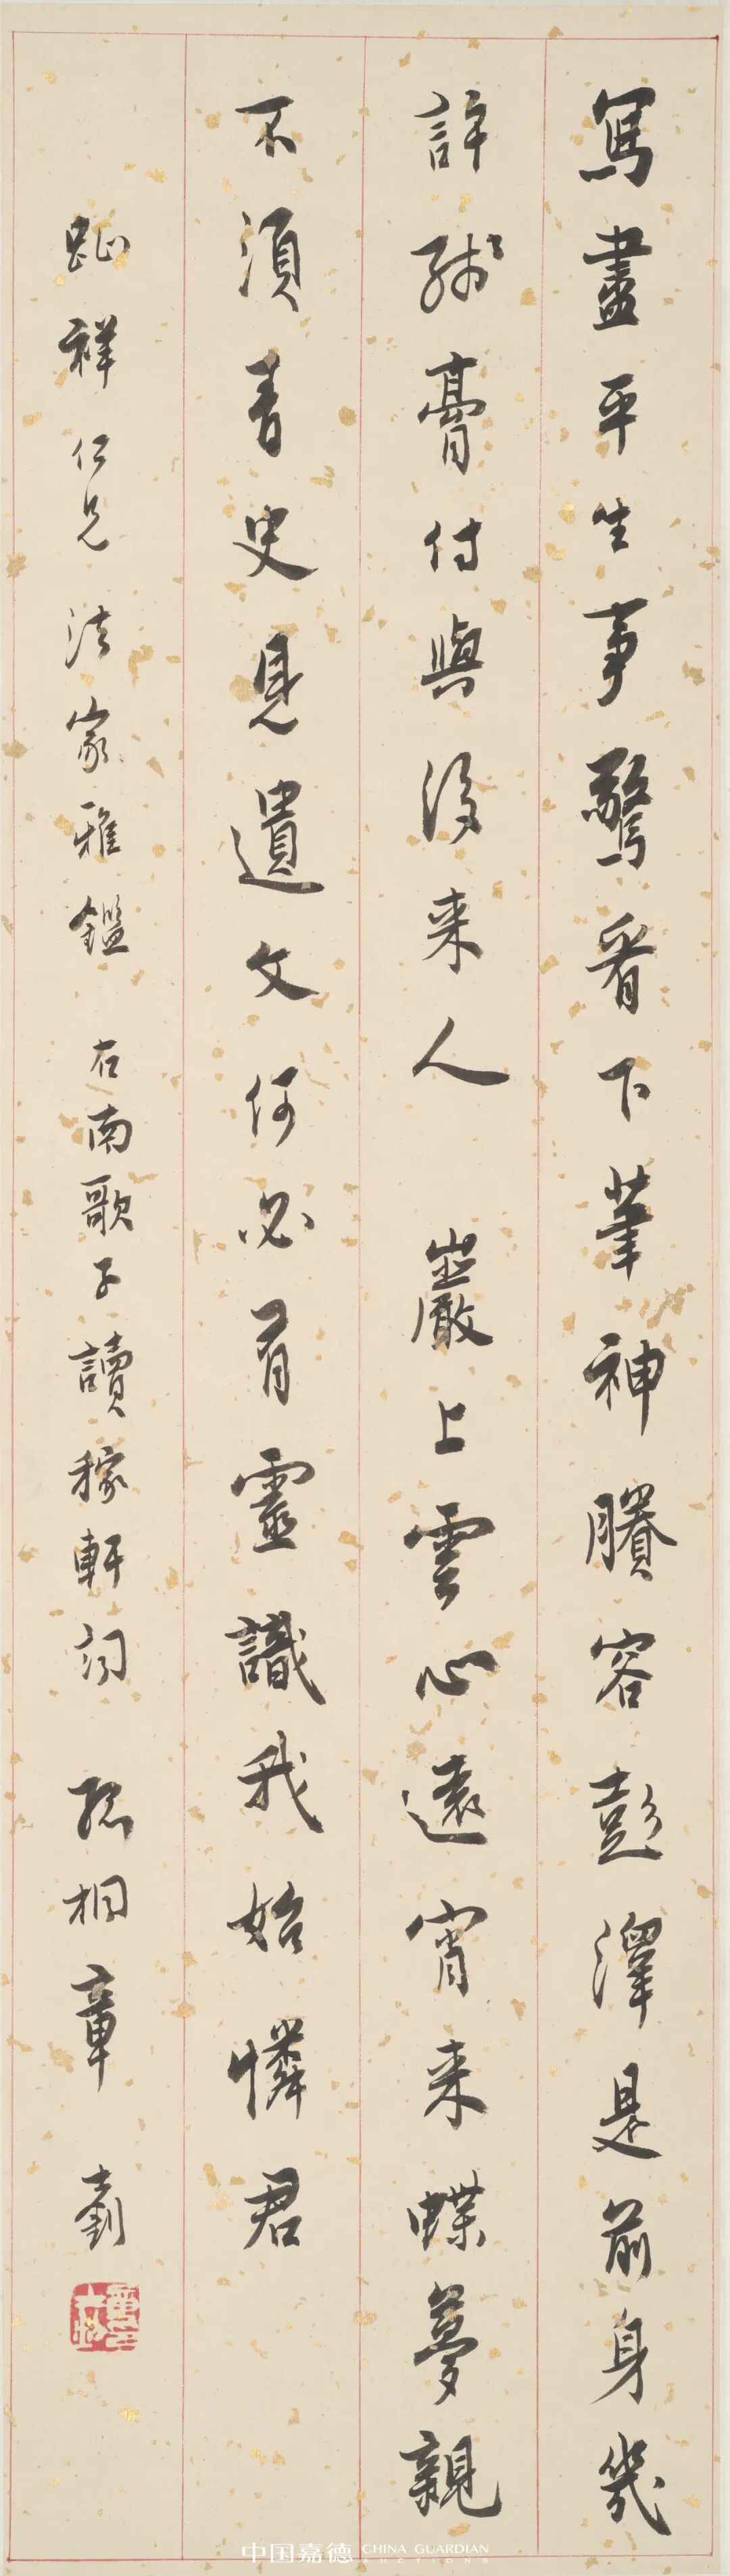 寫盡平生事驚看下筆神賸容彭澤是前身幾
許殘膏付與後來人 巖上雲心遠宵來蝶夢親
不須青史見遺文何必有靈識我始憐君
趾祥仁兄法家雅鑑 右南歌子讀稼軒詞 孤桐章士釗
中国嘉德 CHINA GUARDIAN
AUCTIONS